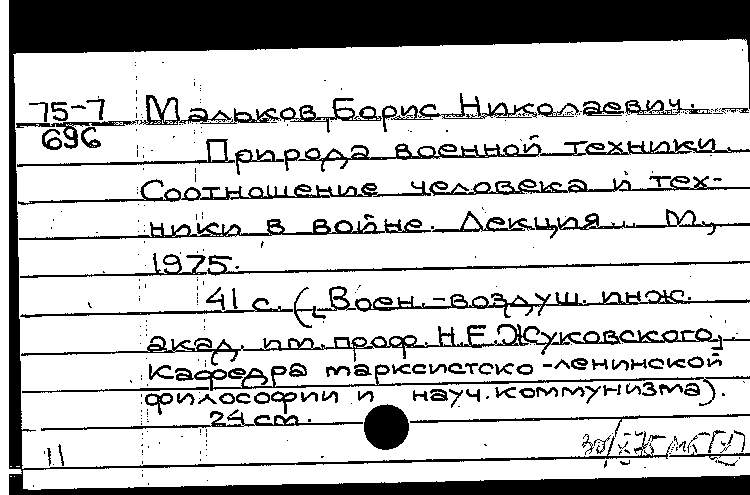 75-7 Мальков, Борис Николаевич.
696
Природа военной техники.
Соотношение человека и тех-
ники в войне. Лекция... М.,
1975.
41 с. ([Воен.-воздуш. инж.
акад. им. проф. Н.Е.Жуковского],
кафедра марксистско-ленинской
философии и науч.коммунизма).
24 см.
11